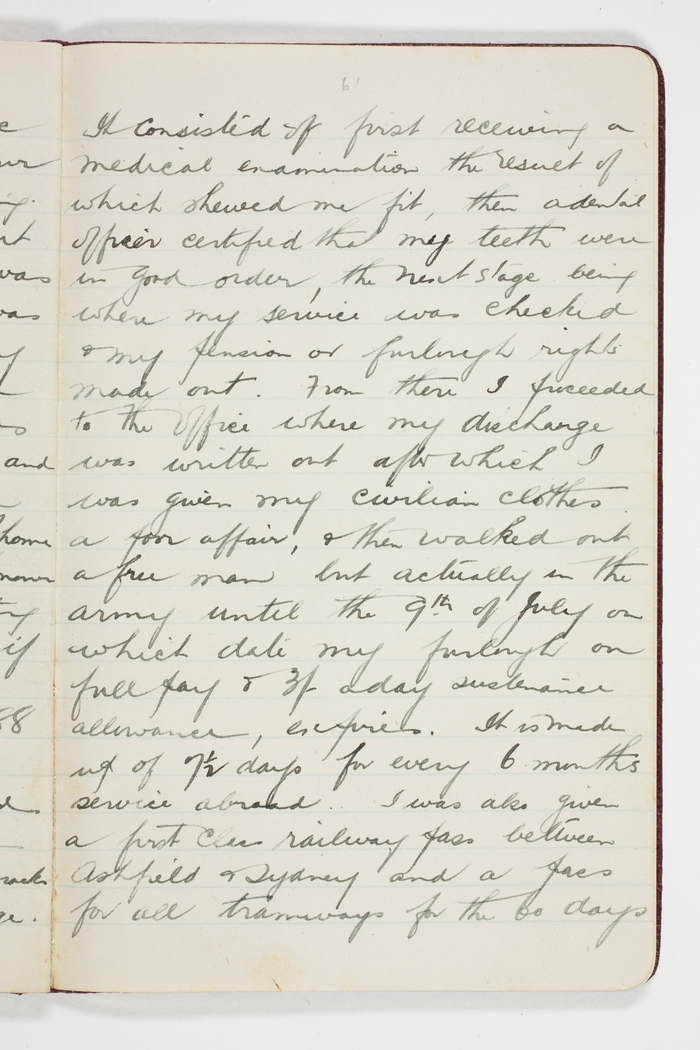 61
It consisted of first receiving a
medical examination the result of
which shewed me fit, then a dental
Officer certified that my teeth were
in good order, the next stage being
where my service was checked
& my pension or furlough rights
made out. From there I proceeded
to the Office where my discharge
was written out after which I
was given my civilian clothes
a poor affair, & then walked out
a free man but actually in the
army until the 9th of July on
which date my furlough on
full pay & 3/- a day sustenance
allowance, expires. It is made
up of 7½ days for every 6 months
service abroad. I was also given
a first Class railway pass between
Ashfield & Sydney and a pass
for all tramways for the 60 days
and
home
if
88